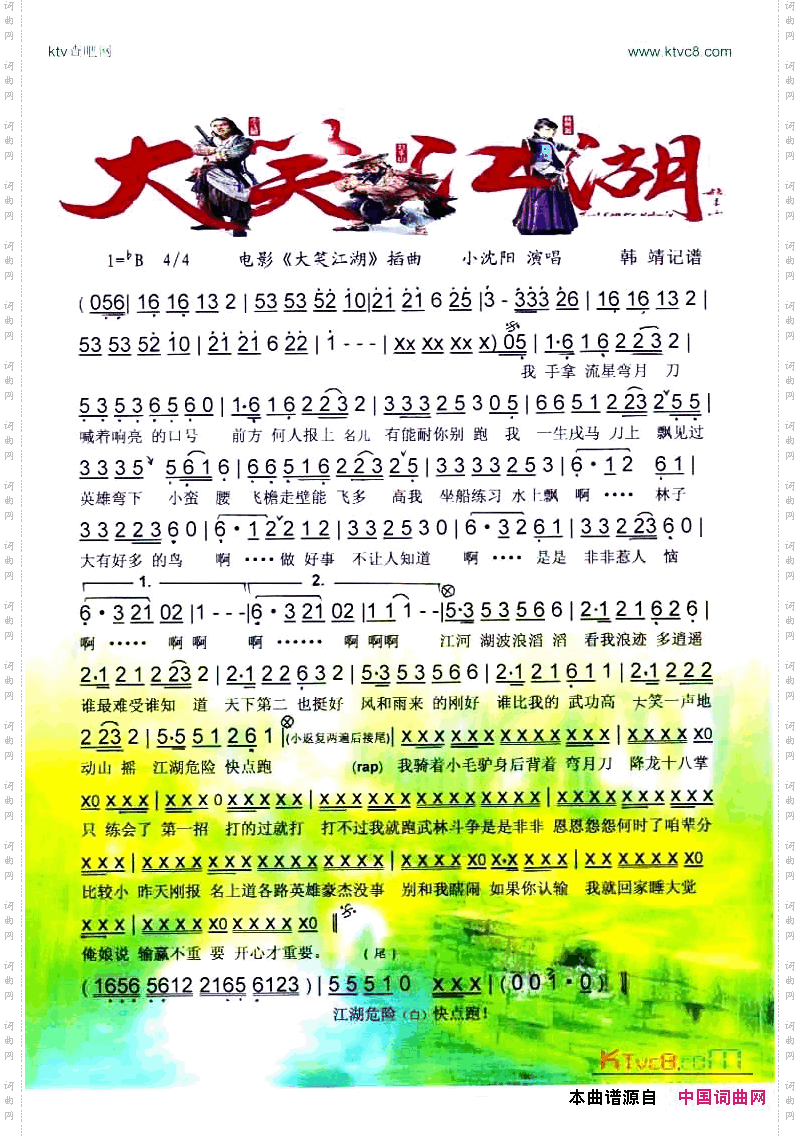 ktv查吧网
www.ktvc8.com
大笑江湖
1=♭B 4/4 电影《大笑江湖》插曲 小沈阳 演唱 韩 靖记谱
(056| 16 16 13 2 | 53 53 52 10|21 21 6 25 |3 - 333 26 | 16 16 13 2 |
53 53 52 10 | 21 21 6 22 | 1 - - - | xx xx xx x) 05 | 1·6 16 22 3 2 |
我 手拿 流星弯月 刀
53 53 65 60 | 1·6 16 22 23 2 | 333 25 30 5 | 66 51 2 23 2 55 |
喊着响亮 的口号 前方 何人报上 名儿 有能耐你别 跑 我 一生戎马 刀上 飘见过
3335 561 6 | 66 516 22 23 2 35 | 333 3253 | 6·12 61 |
英雄弯下 小蛮 腰 飞檐走壁能 飞多 高我 坐船练习 水上飘 啊 ···· 林子
33 2223 60 | 6·12 2212 | 332 5530 | 6·32 61 | 332 23 60 |
大有好多 的鸟 啊 ····做 好事 不让人知道 啊 ···· 是是 非非惹人 恼
1. 2.
6·321 02 |1 - - -|6·321 02 |11 1 - -|5·3 53566 | 2·1 21626 |
啊 ····· 啊啊 啊 ······ 啊 啊啊 江河 湖波浪滔 滔 看我浪迹 多逍遥
2·1 21 2 23 2 | 2·1 2 2 63 2 | 5·3 53566 | 2·1 21 61 | 2·1 222
谁最难受谁知 道 天下第二 也挺好 风和雨来 的刚好 谁比我的 武功高 大笑一声地
2 23 2 | 5·5 51 2 61 |(小返复两遍后接尾)| x x x x x x x x | x x x x x0
动山 摇 江湖危险 快点跑 (rap) 我骑着小毛驴身后背着 弯月刀 降龙十八掌
x0 x x x | x x x 0 x x x | x x x x x x x x x x | x x x x x x x x x
只 练会了 第一招 打的过就打 打不过我就跑武林斗争是是非非 恩恩怨怨何时了咱辈分
x x x | x x x x x x x x x x x x x | x x x x0 x·x x x | x x x x x x0
比较小 昨天刚报 名上道各路英雄豪杰没事 别和我瞎闹 如果你认输 我就回家睡大觉
x x x | x x x x x x x x0
俺娘说 输赢不重 要 开心才重要。 (尾)
(1656 5612 2165 6123) | 55510 x x x | (001·0)
江湖危险 (白) 快点跑!
KTvc8.com
本曲谱源自 中国词曲网